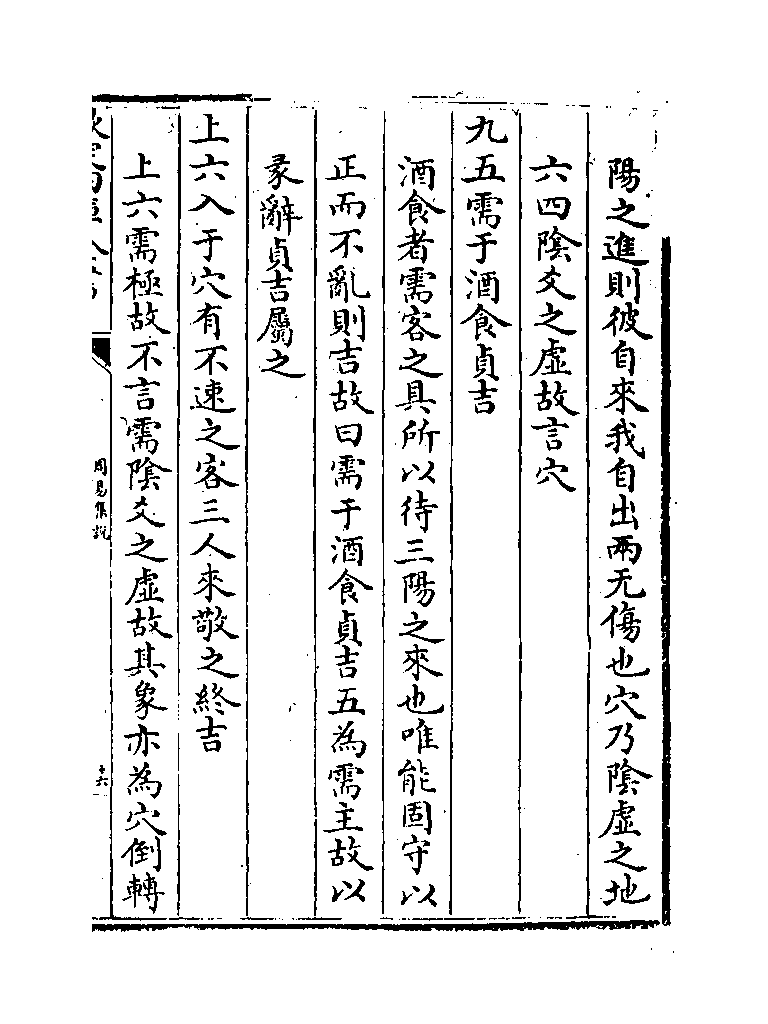 陽之進則彼自來我自出兩无傷也穴乃陰虛之地
六四陰爻之虛故言穴
九五需于酒食貞吉
酒食者需客之具所以待三陽之來也唯能固守以
正而不亂則吉故曰需于酒食貞吉五為需主故以
彖辭貞吉屬之
上六入于穴有不速之客三人來敬之終吉
上六需極故不言需陰爻之虛故其象亦為穴倒轉
周易集說
十六